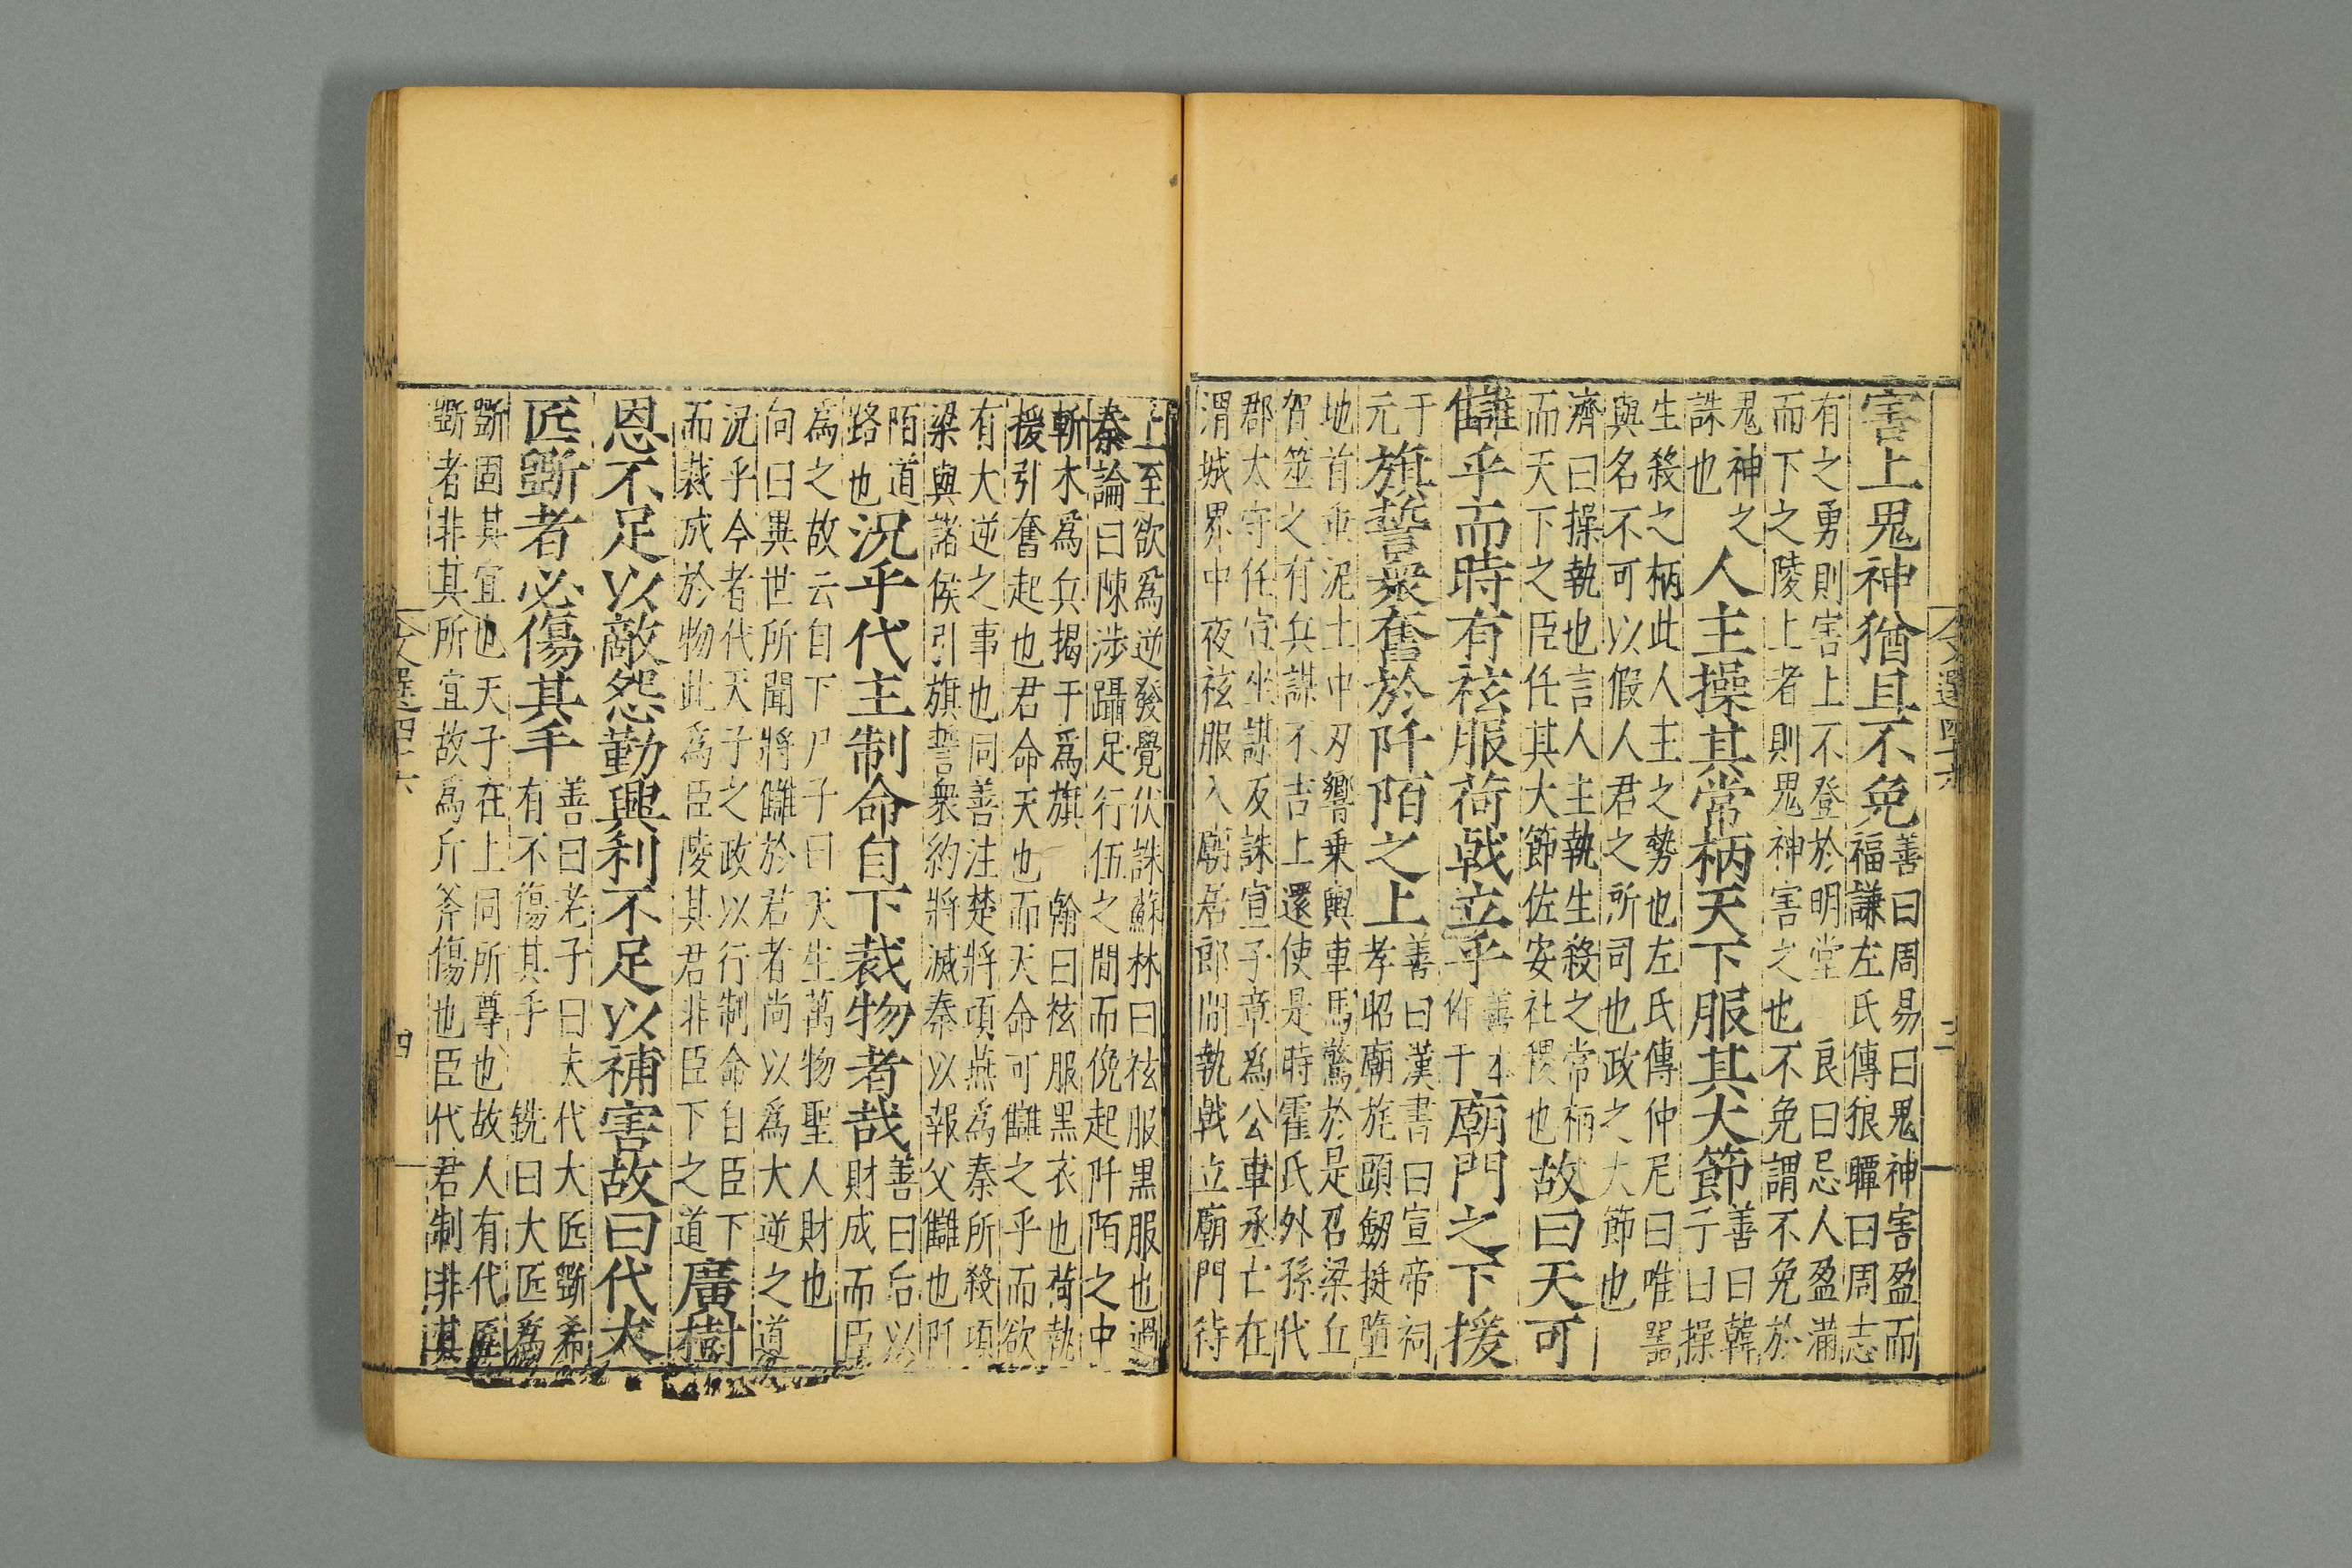 害上鬼神猶且不免善曰周易曰鬼神害盈而
福謙左氏傳狼瞫曰周志
有之勇則害上不登於明堂 良曰忌人盈滿
而下之陵上者則鬼神害之也不免謂不免於
鬼神之
誅也
人主操其常柄天下服其大節善曰韓
子曰操
生殺之柄此人主之勢也左氏傳仲尼曰唯器
與名不可以假人君之所司也政之大節也
濟曰操執也言人主執生殺之常柄
而天下之臣任其大節佐安社稷也
故曰天可
讎乎而時有袨服荷戟立乎善本
作于
廟門之下援
于
元
旗誓衆奮於阡陌之上善曰漢書曰宣帝祠
孝昭廟旄頭劒挺墮
地首垂泥土中刃響乗輿車馬驚於是召梁丘
賀筮之有兵謀不吉上還使是時霍氏外孫代
郡太守任宣坐謀反誅宣子章爲公車丞亡在
渭城界中夜袨服入廟居郎間執戟立廟門待
上至欲爲逆發覺伏誅蘇林曰袨服黑服也過
秦論曰陳涉躡足行伍之間而俛起阡陌之中
斬木爲兵揭干爲旗 翰曰袨服黑衣也荷執
援引奮起也君命天也而天命可讎之乎而欲
有大逆之事也同善注楚將項燕爲秦所殺項
梁與諸侯引旗誓衆約將滅秦以報父讎也阡
陌道
路也
況乎代主制命自下裁物者哉善曰后以
財成而臣
爲之故云自下尸子曰天生萬物聖人財也
向曰異世所聞將讎於君者尚以爲大逆之道
況乎今者代天子之政以行制命自臣下
而裁成於物此爲臣陵其君非臣下之道
廣樹
恩不足以敵怨勤興利不足以補害故曰代大
匠斲者必傷其手善曰老子曰夫代大匠斲希
有不傷其手 銑曰大匠爲
斲固其宜也天子在上同所尊也故人有代匠
斲者非其所宜故爲斤斧傷也臣代君制非其
文選四十六
四